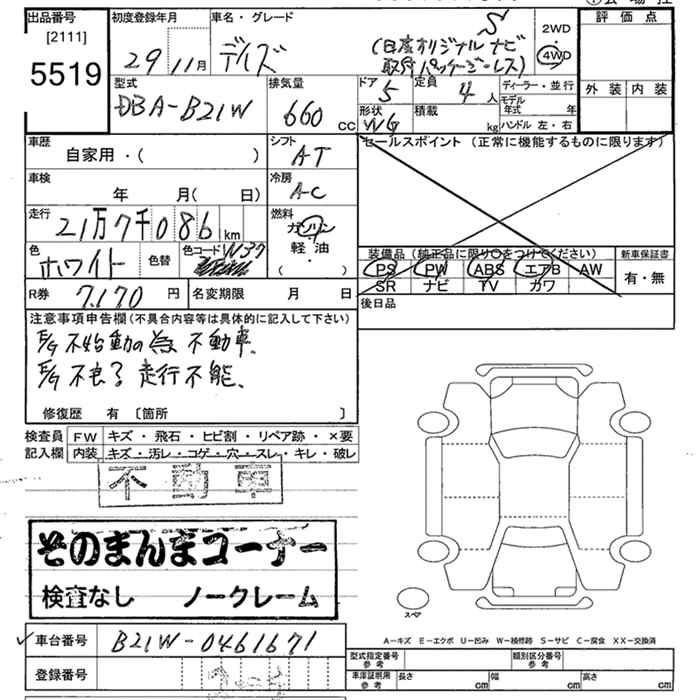 出品番号 初度登録年月 車名・グレード 評価点
[2111] 29 11月 デイズ S 2WD
5519 (日産オリジナルナビ 4WD
取付パッケージレス)
型式 排気量 ドア 定員 ディーラー・並行 外装 内装
DBA-B21W 660 CC 5 4人 モデル年式 年
形状 積載 ハンドル 左・右
WG kg
車歴 シフト セールスポイント (正常に機能するものに限ります)
自家用・( ) AT
車検 冷房
年 月( 日) A-C
走行 燃料
21万7千086km ガソリン
軽油
( )
色 色替 色コード 装備品(純正品に限り○をつけてください) 新車保証書
ホワイト W37 PS PW ABS エアB AW 有・無
SR ナビ TV カワ
R券 7,170円 名変期限 月 日 後日品
注意事項申告欄(不具合内容等は具体的に記入して下さい)
E/G 不始動の為 不動車、
E/G 不良? 走行不能、
修復歴 有 〔箇所 〕
検査員 FW キズ・飛石・ヒビ割・リペア跡・×要
記入欄 内装 キズ・汚レ・コゲ・穴・スレ・キレ・破レ
不動車
そのまんまコーナー
検査なし ノークレーム
スペア
A-キズ E-エクボ U-凹み W-補修跡 S-サビ C-腐食 XX-交換済
車台番号 B21W-0461671
登録番号
型式指定番号 参考 類別区分番号 参考
車庫証明用 参考 長さ cm 幅 cm 高さ cm